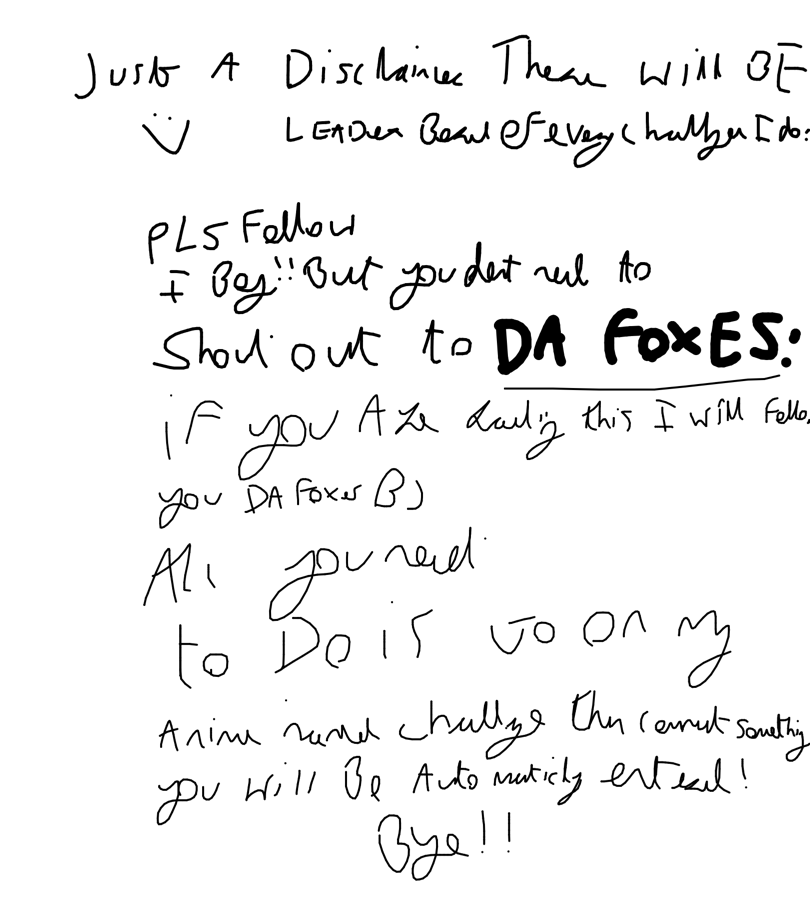 Just A Disclaimer There will BE
LEADer Board OF every challenge I do:
PLS Follow
I Beg!! But you dont need to
Shout out to DA FOXES:
iF you Are reading this I will Follo
you DA Foxes B)
All you need
to Do is Go On my
Anime named challenge then comment something
you will Be Automaticly entered!
Bye!!